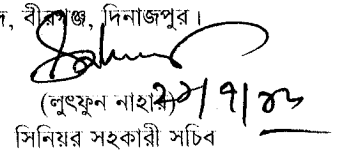 , বীরগঞ্জ, দিনাজপুর।
(লুৎফুন নাহার)
সিনিয়র সহকারী সচিব